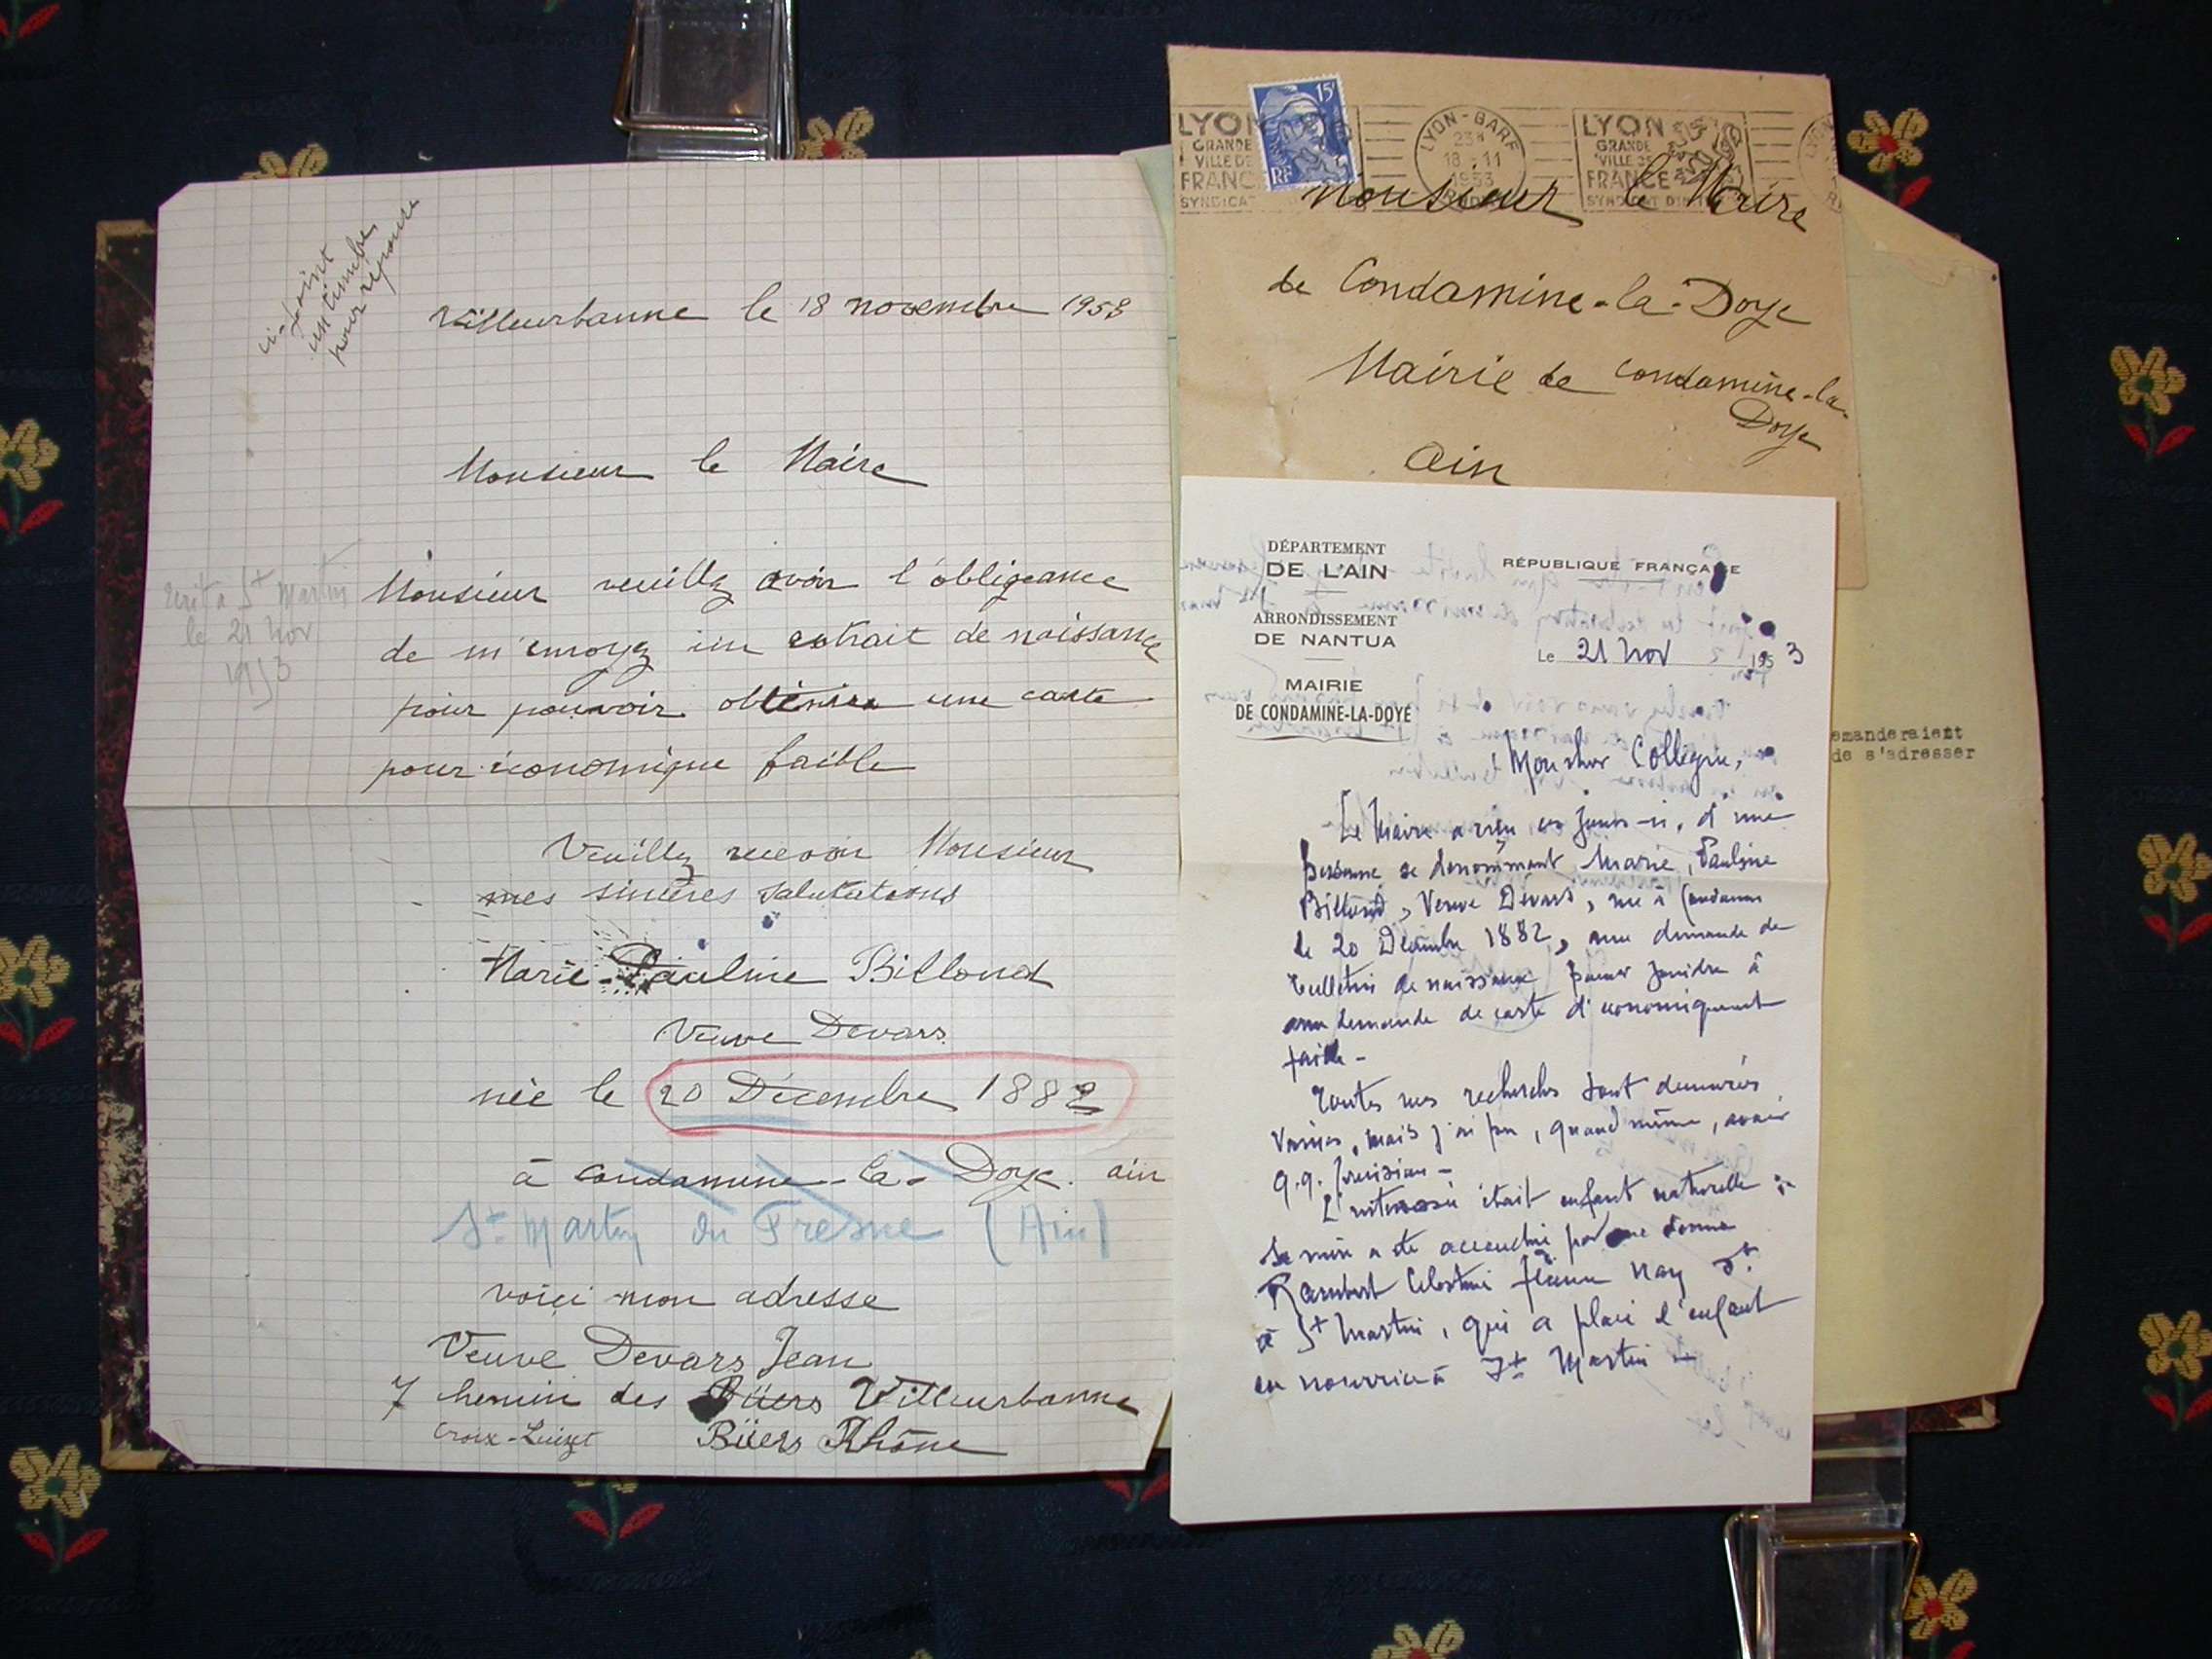 ci-joint
un timbre
pour réponse
Villeurbanne le 18 novembre 1953
Monsieur le Maire
Ecrit à St Martin
le 21 Nov
1953
Monsieur veuillez avoir l'obligeance
de m'envoyez un extrait de naissance
pour pouvoir obtenir une carte
pour économique faible
Veuillez recevoir Monsieur
mes sincères salutations
Marie-Pauline Billoud
Veuve Devars
née le 20 Décembre 1882
à Condamine-la-Doye. ain
St Martin du Fresne (Ain)
voici mon adresse
Veuve Devars Jean
7 chemin des Büers Villeurbanne
Croix-Luizet Büers Rhône
15F
RF
LYON
GRANDE
VILLE DE
FRANC
SYNDICA
LYON-GARE
23H
18-11
1953
LYON
GRANDE
VILLE DE
FRANCE
Monsieur le Maire
de Condamine-la-Doye
Mairie de Condamine-la-
Doye
Ain
DÉPARTEMENT
DE L'AIN
RÉPUBLIQUE FRANÇAISE
ARRONDISSEMENT
DE NANTUA
Le 21 Nov 1953
MAIRIE
DE CONDAMINE-LA-DOYE
Mon cher Collègue,
Le Maire a reçu ces jours-ci, d'une
personne se dénommant Marie, Pauline
Billoud, Veuve Devars, née à Condamine
le 20 Décembre 1882, une demande de
bulletin de naissance pour joindre à
une demande de carte d'économiquement
faible -
Toutes mes recherches sont demeurées
vaines, mais j'ai pu, quand même, avoir
q.q. précision -
L'intéressée était enfant naturelle :-
Sa mère a été accouchée par une dame
Rambert Célestine femme Nay
à St Martin, qui a placé l'enfant
en nourrice à St Martin -
emanderaient
de s'adresser